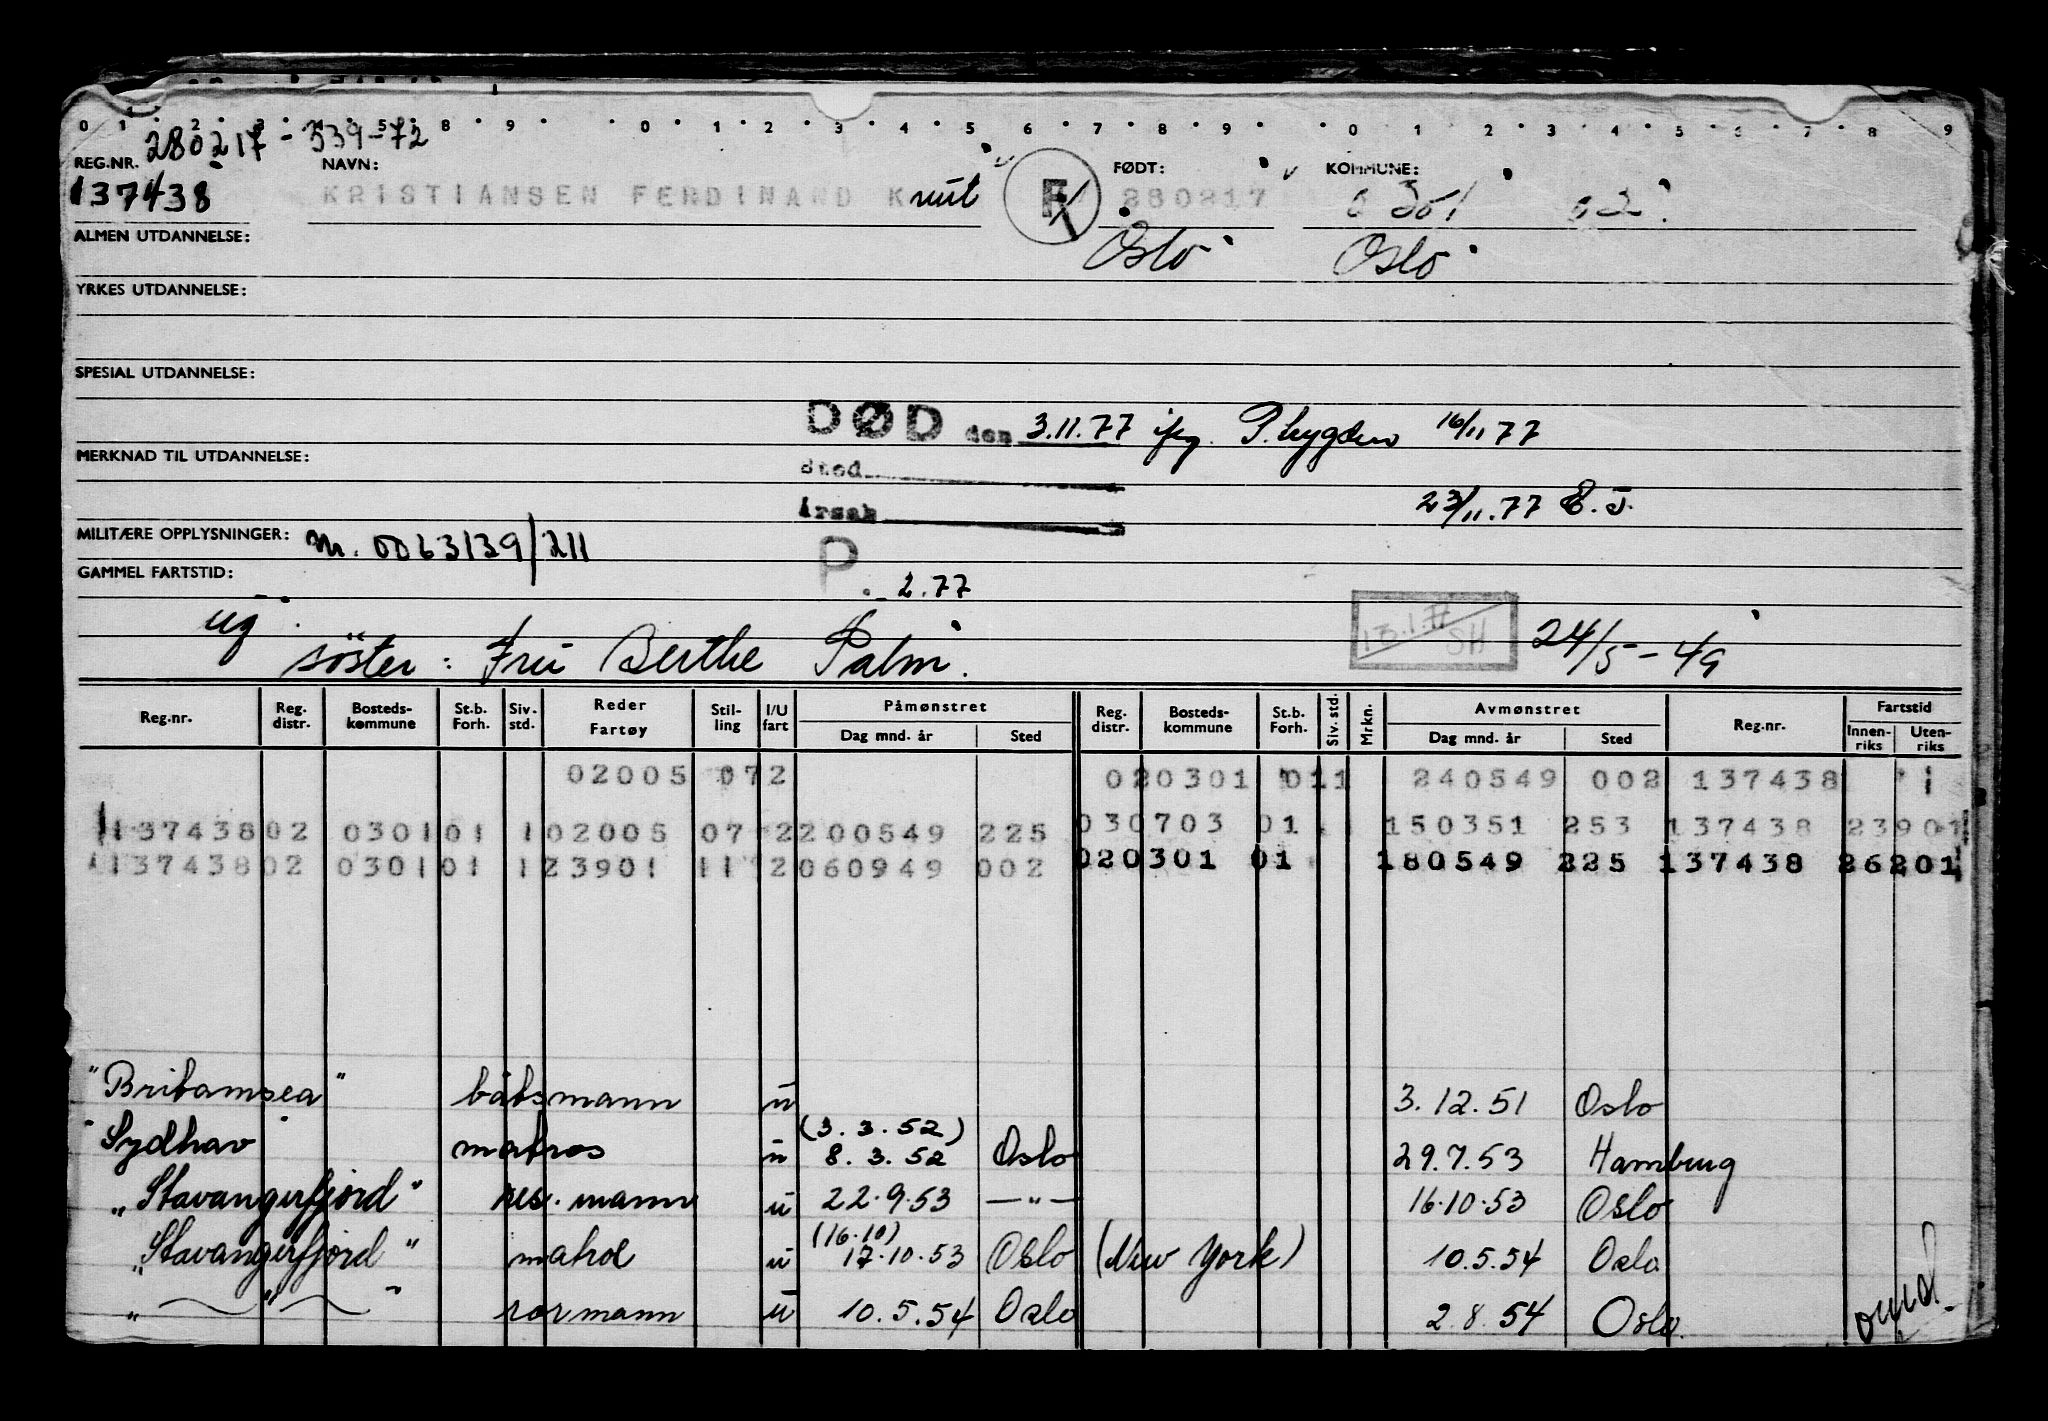 0 1 2 3 4 5 6 7 8 9 0 1 2 3 4 5 6 7 8 9 0 1 2 3 4 5 6 7 8 9
280217 - 339-72
REG.NR. NAVN: FØDT: KOMMUNE:
137438 KRISTIANSEN FERDINAND Knut F 280217 0301 02.
ALMEN UTDANNELSE: Oslo Oslo
YRKES UTDANNELSE:
SPESIAL UTDANNELSE:
DØD den 3.11.77 ifg. P.trygden 16/11 77
MERKNAD TIL UTDANNELSE: Sted
Årsak 23/11.77 E.J.
MILITÆRE OPPLYSNINGER: m. 0063139/211
GAMMEL FARTSTID: P 2.77
ug. 13.1. SH 24/5-49
søster: Fru Berthe Palm.
Reg.nr. Reg. distr. Bosteds-kommune St.b. Forh. Siv. std. Reder Fartøy Stil-ling I/U fart Påmønstret Dag mnd. år Sted Reg. distr. Bosteds-kommune St.b. Forh. Siv. std. Mrkn. Avmønstret Dag mnd. år Sted Reg.nr. Fartstid Innen-riks Uten-riks
02005 072 020301 011 240549 002 137438 1
137438 02 0301 01 1 02005 07 2 200549 225 030703 01 150351 253 137438 23901
137438 02 0301 01 1 23901 11 2 060949 002 020301 01 180549 225 137438 26201
"Britamsea" båtsmann u 3.12.51 Oslo
(3.3.52)
"Sydhav" matros u 8.3.52 Oslo 29.7.53 Hamburg
"Stavangerfjord" res. mann u 22.9.53 —"— 16.10.53 Oslo
(16.10)
"Stavangerfjord" matros u 17.10.53 Oslo (New York) 10.5.54 Oslo
" — " — " rormann u 10.5.54 Oslo 2.8.54 Oslo.